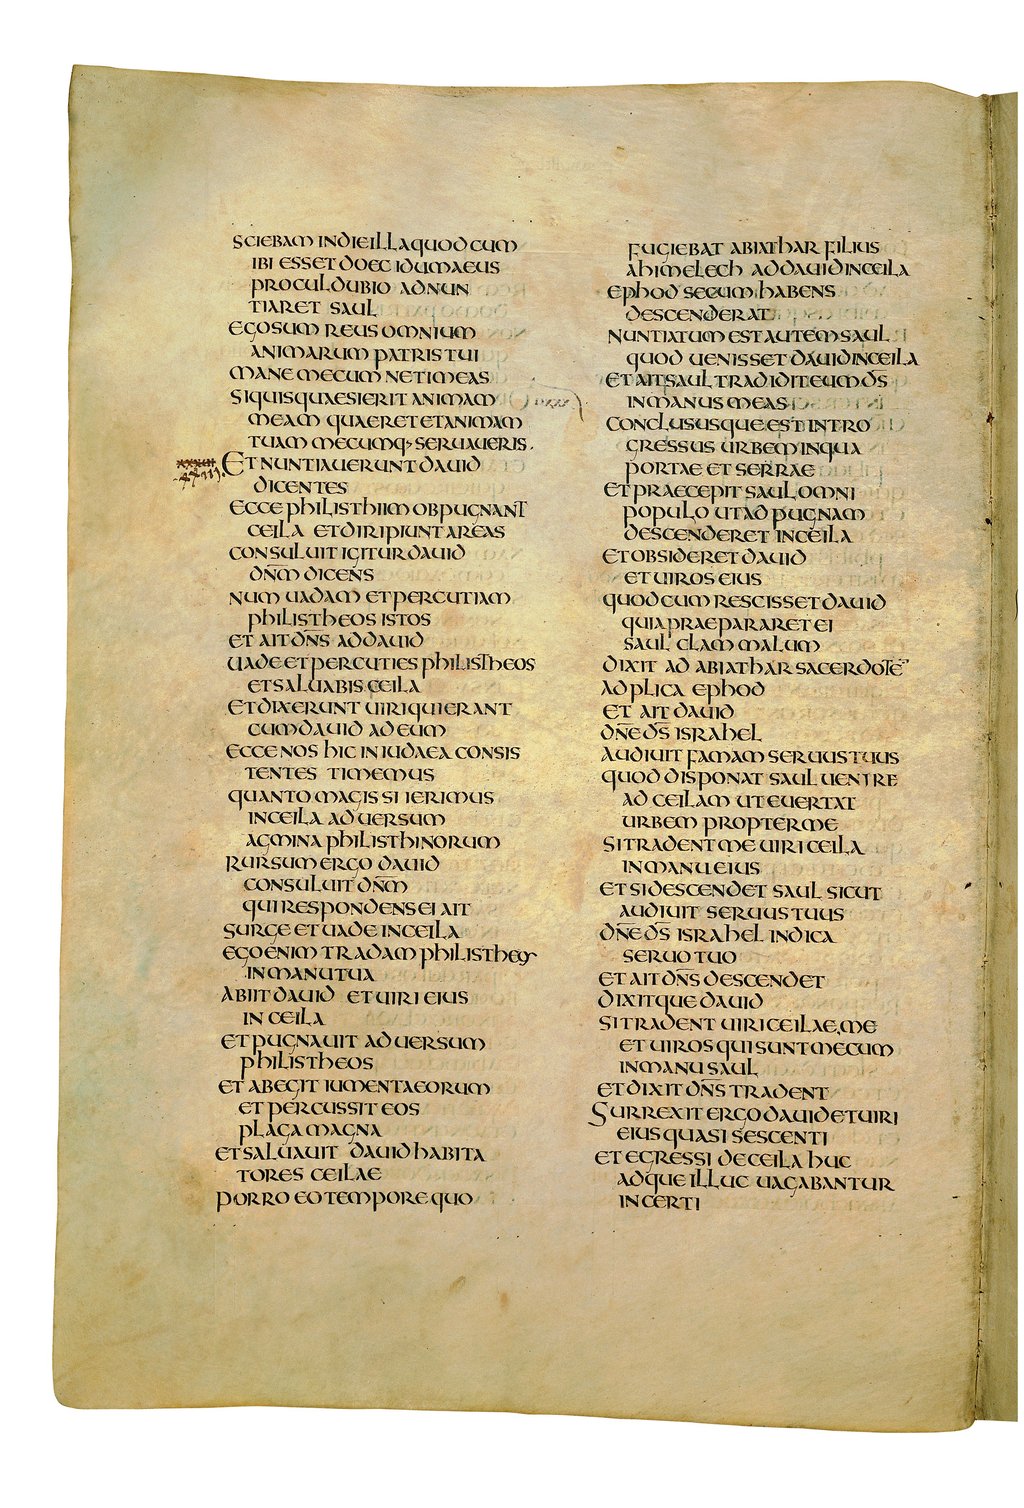 SCIEBAM IN DIE ILLA QUOD CUM
IBI ESSET DOEC IDUMAEUS
PROCUL DUBIO ADNUN
TIARET SAUL
EGO SUM REUS OMNIUM
ANIMARUM PATRIS TUI
MANE MECUM NE TIMEAS
SI QUIS QUAESIERIT ANIMAM
MEAM QUAERET ET ANIMAM
TUAM MECUMQ· SERUAUERIS·
ET NUNTIAUERUNT DAUID
DICENTES
ECCE PHILISTHIIM OBPUGNANT
CEILA ET DIRIPIUNT AREAS
CONSULUIT IGITUR DAUID
DN̅M DICENS
NUM UADAM ET PERCUTIAM
PHILISTHEOS ISTOS
ET AIT DN̅S AD DAUID
UADE ET PERCUTIES PHILISTHEOS
ET SALUABIS CEILA
ET DIXERUNT UIRI QUI ERANT
CUM DAUID AD EUM
ECCE NOS HIC IN IUDAEA CONSIS
TENTES TIMEMUS
QUANTO MAGIS SI IERIMUS
IN CEILA ADUERSUM
AGMINA PHILISTHINORUM
RURSUM ERGO DAUID
CONSULUIT DN̅M
QUI RESPONDENS EI AIT
SURGE ET UADE IN CEILA
EGO ENIM TRADAM PHILISTHEOS
IN MANU TUA
ABIIT DAUID ET UIRI EIUS
IN CEILA
ET PUGNAUIT ADUERSUM
PHILISTHEOS
ET ABEGIT IUMENTA EORUM
ET PERCUSSIT EOS
PLAGA MAGNA
ET SALUAUIT DAUID HABITA
TORES CEILAE
PORRO EO TEMPORE QUO
FUGIEBAT ABIATHAR FILIUS
AHIMELECH AD DAUID IN CEILA
EPHOD SECUM HABENS
DESCENDERAT
NUNTIATUM EST AUTEM SAUL
QUOD UENISSET DAUID IN CEILA
ET AIT SAUL TRADIDIT EUM D̅S
IN MANUS MEAS
CONCLUSUSQUE EST INTRO
GRESSUS URBEM IN QUA
PORTAE ET SERRAE
ET PRAECEPIT SAUL OMNI
POPULO UT AD PUGNAM
DESCENDERET IN CEILA
ET OBSIDERET DAUID
ET UIROS EIUS
QUOD CUM RESCISSET DAUID
QUIA PRAEPARARET EI
SAUL CLAM MALUM
DIXIT AD ABIATHAR SACERDOTE̅
ADPLICA EPHOD
ET AIT DAUID
DN̅E D̅S ISRAHEL
AUDIUIT FAMAM SERUUS TUUS
QUOD DISPONAT SAUL UENIRE
AD CEILAM UT EUERTAT
URBEM PROPTER ME
SI TRADENT ME UIRI CEILA
IN MANU EIUS
ET SI DESCENDET SAUL SICUT
AUDIUIT SERUUS TUUS
DN̅E D̅S ISRAHEL INDICA
SERUO TUO
ET AIT DN̅S DESCENDET
DIXITQUE DAUID
SI TRADENT UIRI CEILAE ME
ET UIROS QUI SUNT MECUM
IN MANU SAUL
ET DIXIT DN̅S TRADENT
SURREXIT ERGO DAUID ET UIRI
EIUS QUASI SESCENTI
ET EGRESSI DE CEILA HUC
ADQUE ILLUC UAGABANTUR
INCERTI